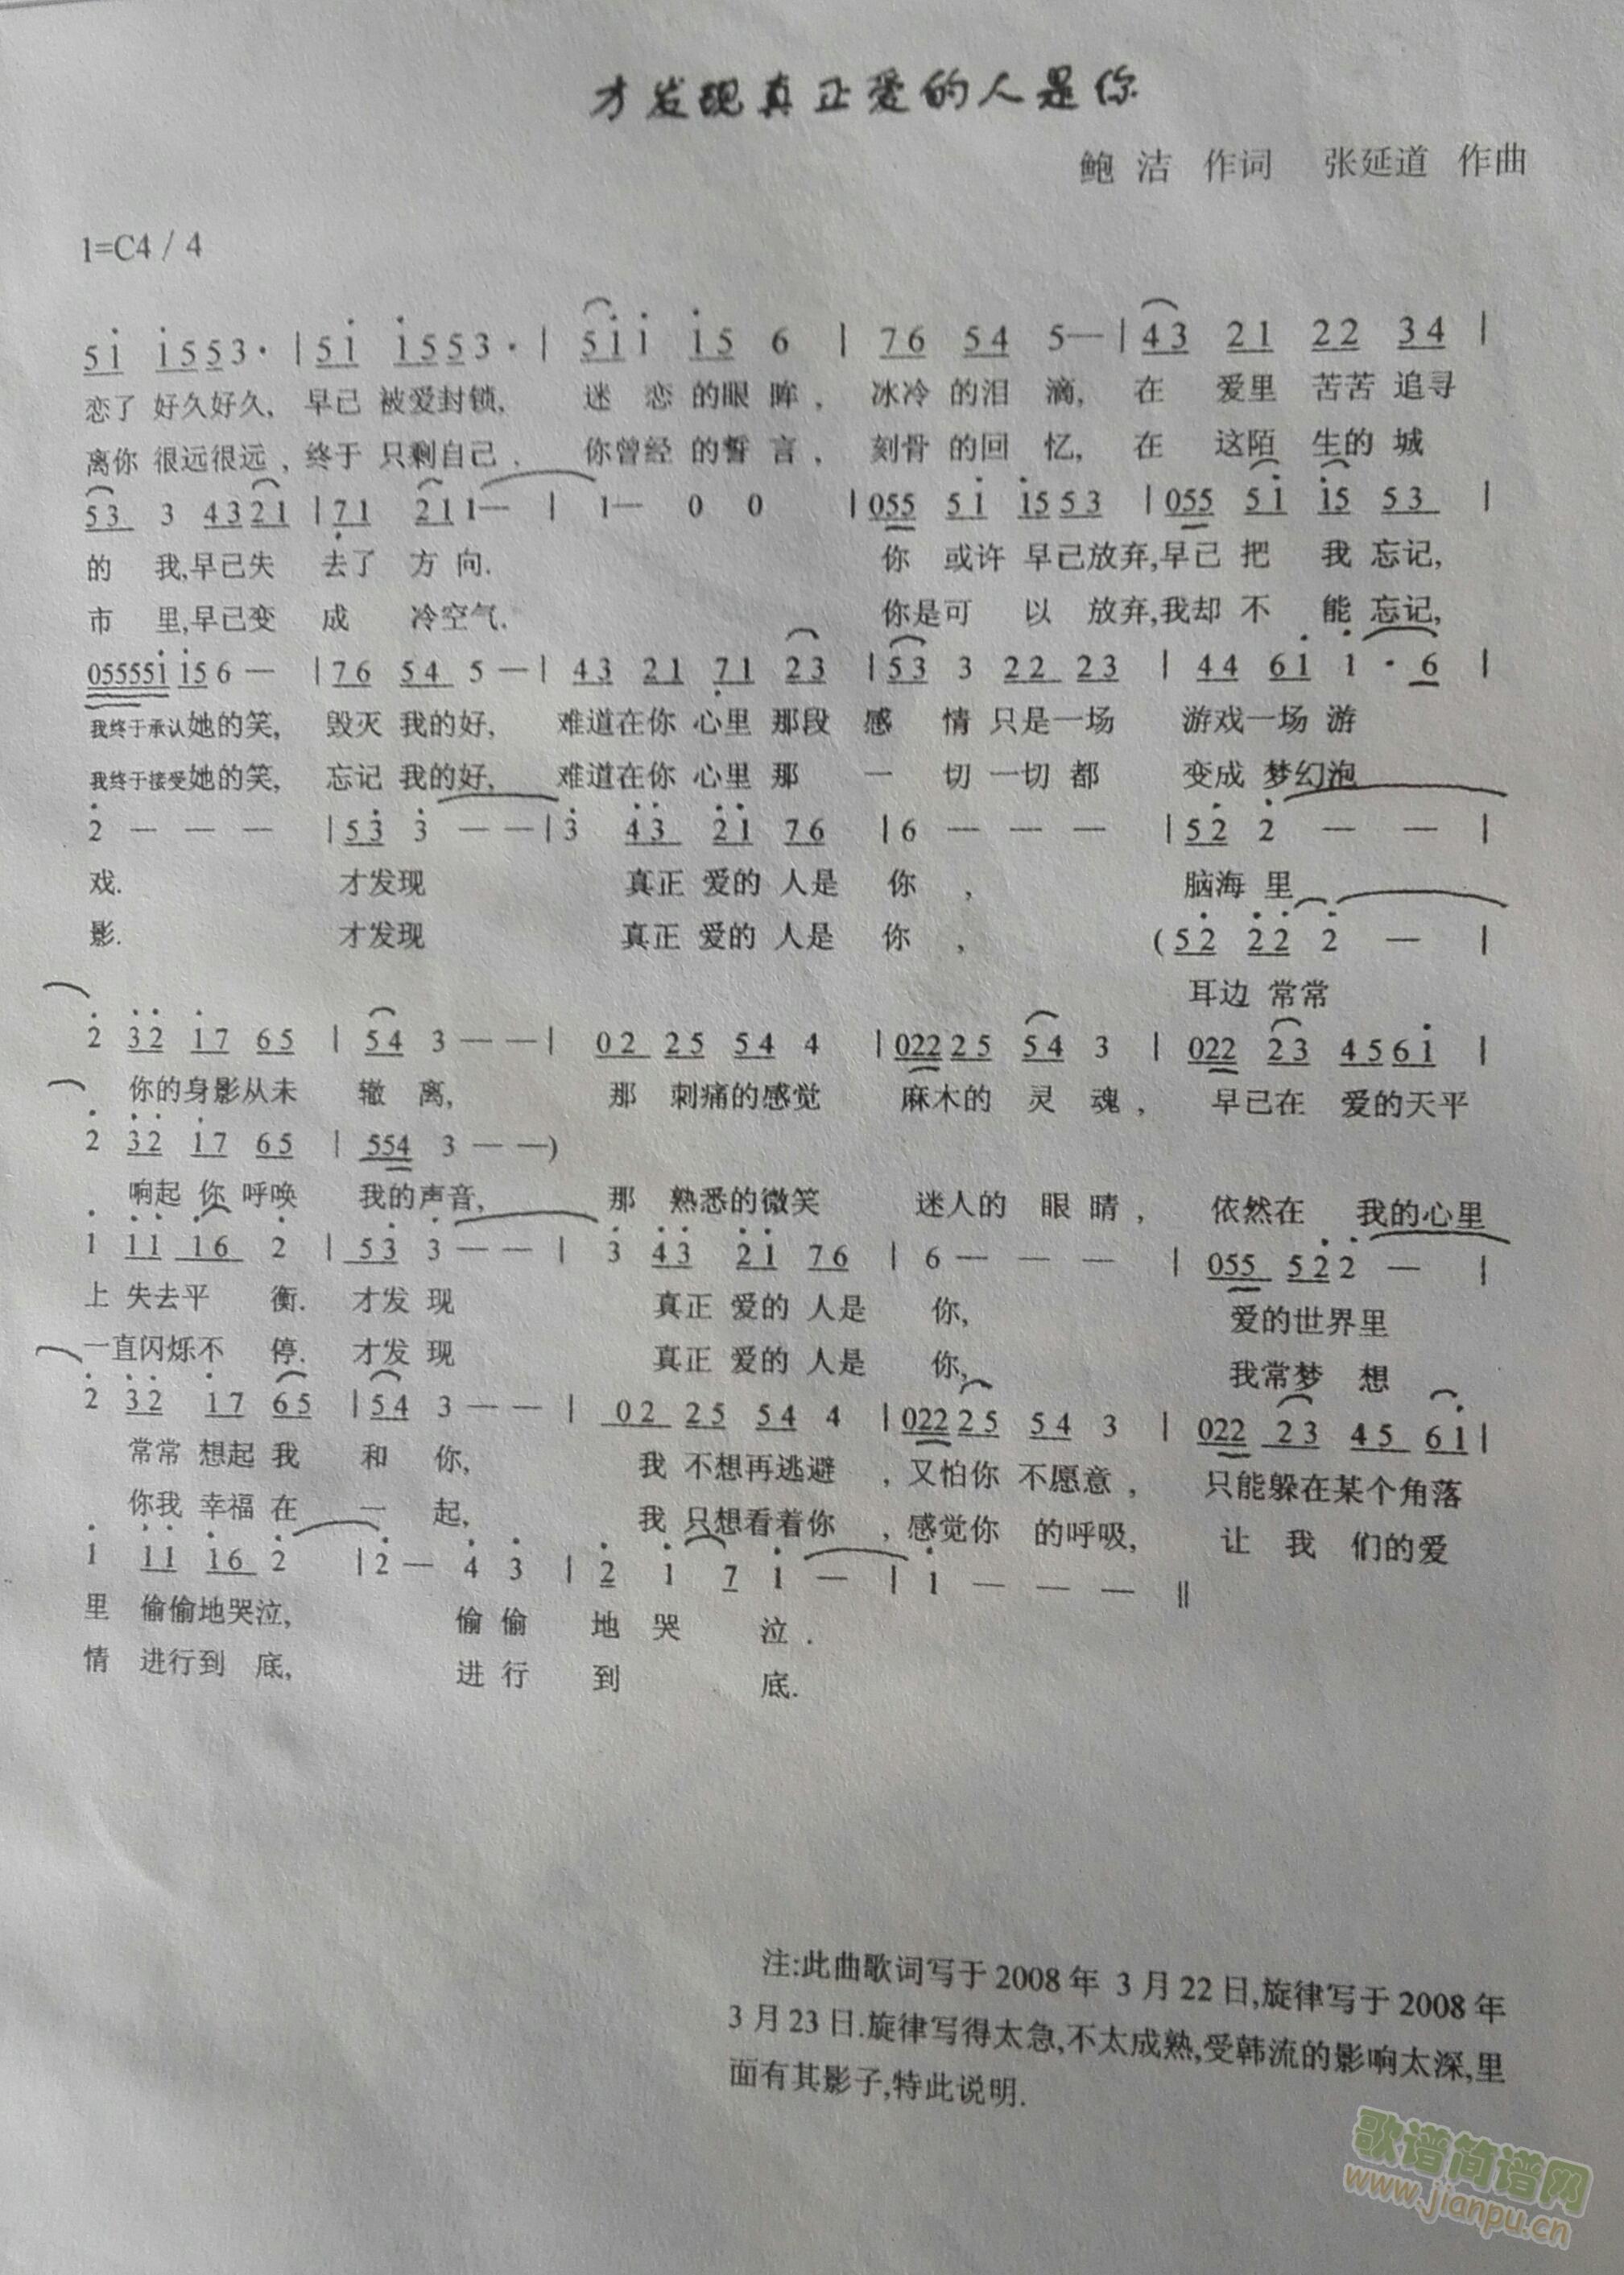 才发现真正爱的人是你
鲍 洁 作词 张延道 作曲
1=C4 / 4
5i i553· | 5i i553· | 5ii i5 6 | 76 54 5— | 43 21 22 34 |
恋了 好久好久, 早已 被爱封锁, 迷 恋 的眼 眸, 冰冷 的泪 滴, 在 爱里 苦苦 追寻
离你 很远很远, 终于 只剩自己. 你曾经 的誓 言, 刻骨 的回 忆, 在 这陌 生的 城
53 3 4321 | 71 211— | 1— 0 0 | 055 5i i553 | 055 5i i5 53 |
的 我,早已失 去了 方 向. 你 或许 早已放弃,早已 把 我 忘记,
市 里,早已变 成 冷空气. 你是可 以 放弃,我却 不 能 忘记,
05555i i56 — | 76 54 5 — | 43 21 71 23 | 53 3 22 23 | 44 6i i · 6 |
我终于承认她的笑, 毁灭 我的好, 难道在你 心里 那段 感 情 只是一场 游戏一场 游
我终于接受她的笑, 忘记 我的好, 难道在你 心里 那 一 切 一切 都 变成 梦幻泡
2 — — — | 53 3 — — | 3 43 2i 76 | 6 — — — | 52 2 — — |
戏. 才发现 真正 爱的 人是 你 , 脑海 里
影. 才发现 真正 爱的 人是 你 ,
(52 22 2 — |
耳边 常常
2 32 i7 65 | 54 3 — — | 02 25 54 4 | 02225 54 3 | 022 23 456i |
你的身影从未 辙 离, 那 刺痛的感觉 麻木的 灵 魂, 早已在 爱的天平
2 32 i7 65 | 554 3 — —)
响起 你 呼唤 我的声音, 那 熟悉的微笑 迷人的 眼 睛, 依然在 我的心里
i ii i6 2 | 53 3 — — | 3 43 2i 76 | 6 — — — | 055 522 — |
上 失去平 衡. 才发 现 真正 爱的 人是 你, 爱的世界里
一直闪烁不 停. 才发 现 真正 爱的 人是 你, 我常梦 想
2 32 i7 65 | 54 3 — — | 02 25 54 4 | 02225 54 3 | 022 23 45 6i |
常常 想起 我 和 你, 我 不想再逃避 ,又怕你 不愿意, 只能躲在某个角落
你我 幸福 在 一 起, 我 只想看着你 ,感觉你 的呼吸, 让 我 们的爱
i ii i6 2 | 2 — 4 3 | 2 i 7 i — | i — — — ‖
里 偷偷地哭泣, 偷 偷 地 哭 泣.
情 进行到 底, 进 行 到 底.
注:此曲歌词写于2008年 3月22日,旋律写于2008年
3月23日.旋律写得太急,不太成熟,受韩流的影响太深,里
面有其影子,特此说明.
歌谱简谱网
www.jianpu.cn